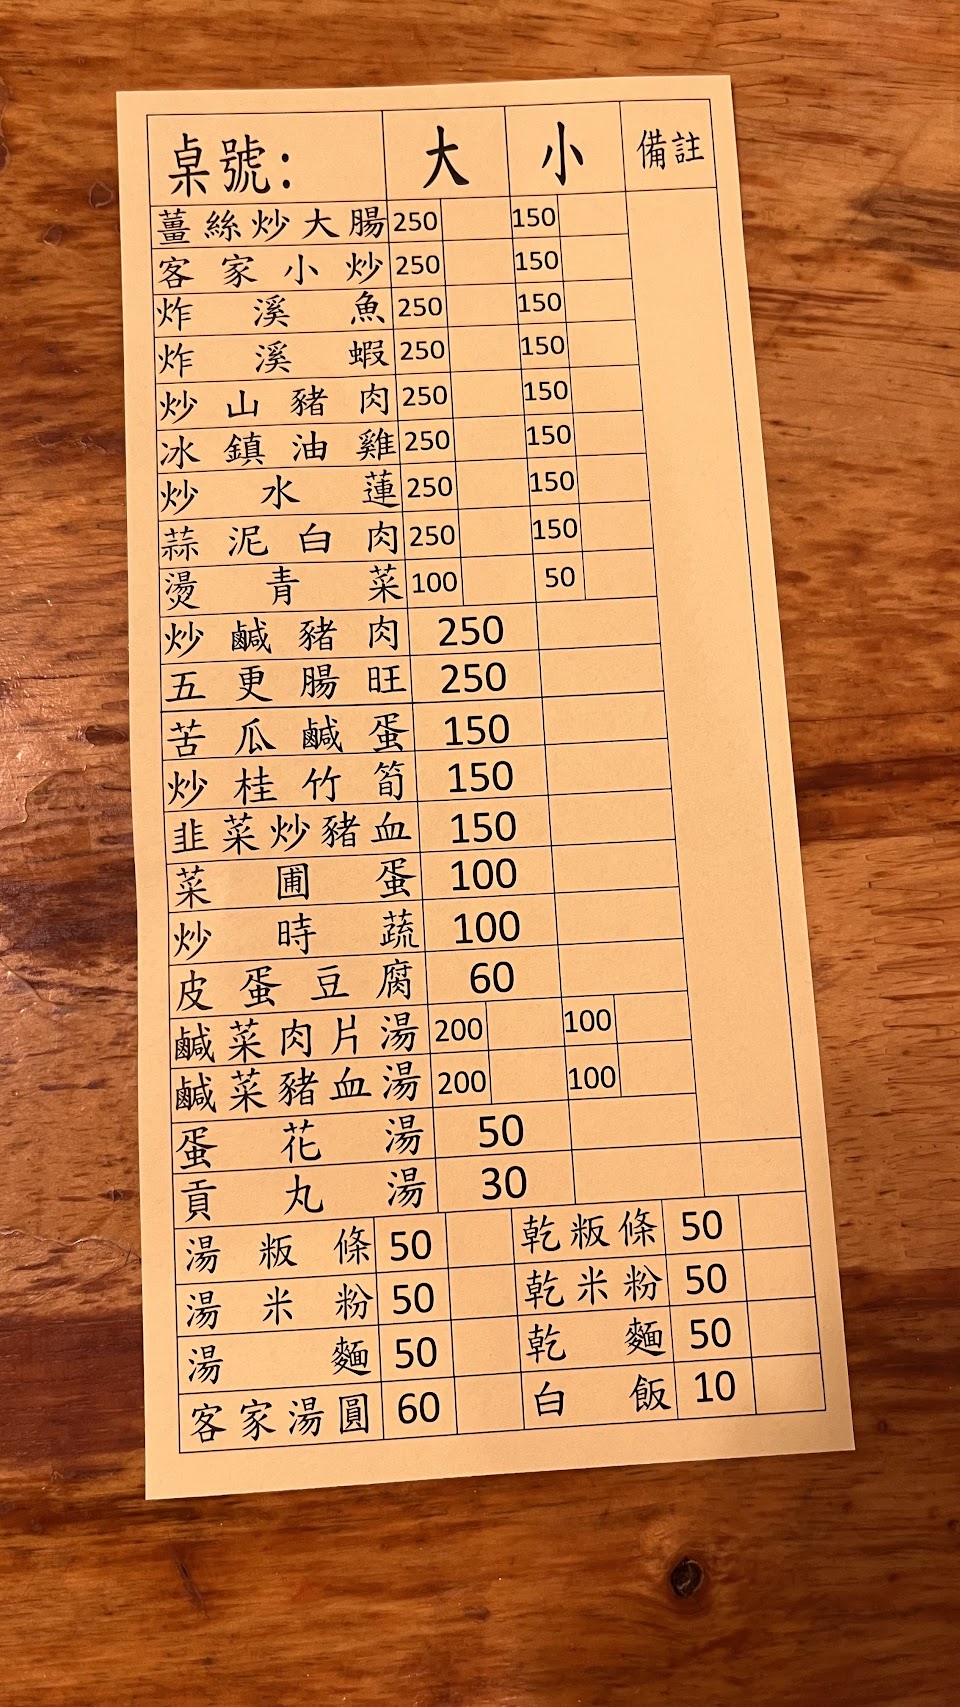 桌號: 大 小 備註
薑絲炒大腸 250 150
客家小炒 250 150
炸溪魚 250 150
炸溪蝦 250 150
炒山豬肉 250 150
冰鎮油雞 250 150
炒水蓮 250 150
蒜泥白肉 250 150
燙青菜 100 50
炒鹹豬肉 250
五更腸旺 250
苦瓜鹹蛋 150
炒桂竹筍 150
韭菜炒豬血 150
菜圃蛋 100
炒時蔬 100
皮蛋豆腐 60
鹹菜肉片湯 200 100
鹹菜豬血湯 200 100
蛋花湯 50
貢丸湯 30
湯粄條 50 乾粄條 50
湯米粉 50 乾米粉 50
湯麵 50 乾麵 50
客家湯圓 60 白飯 10